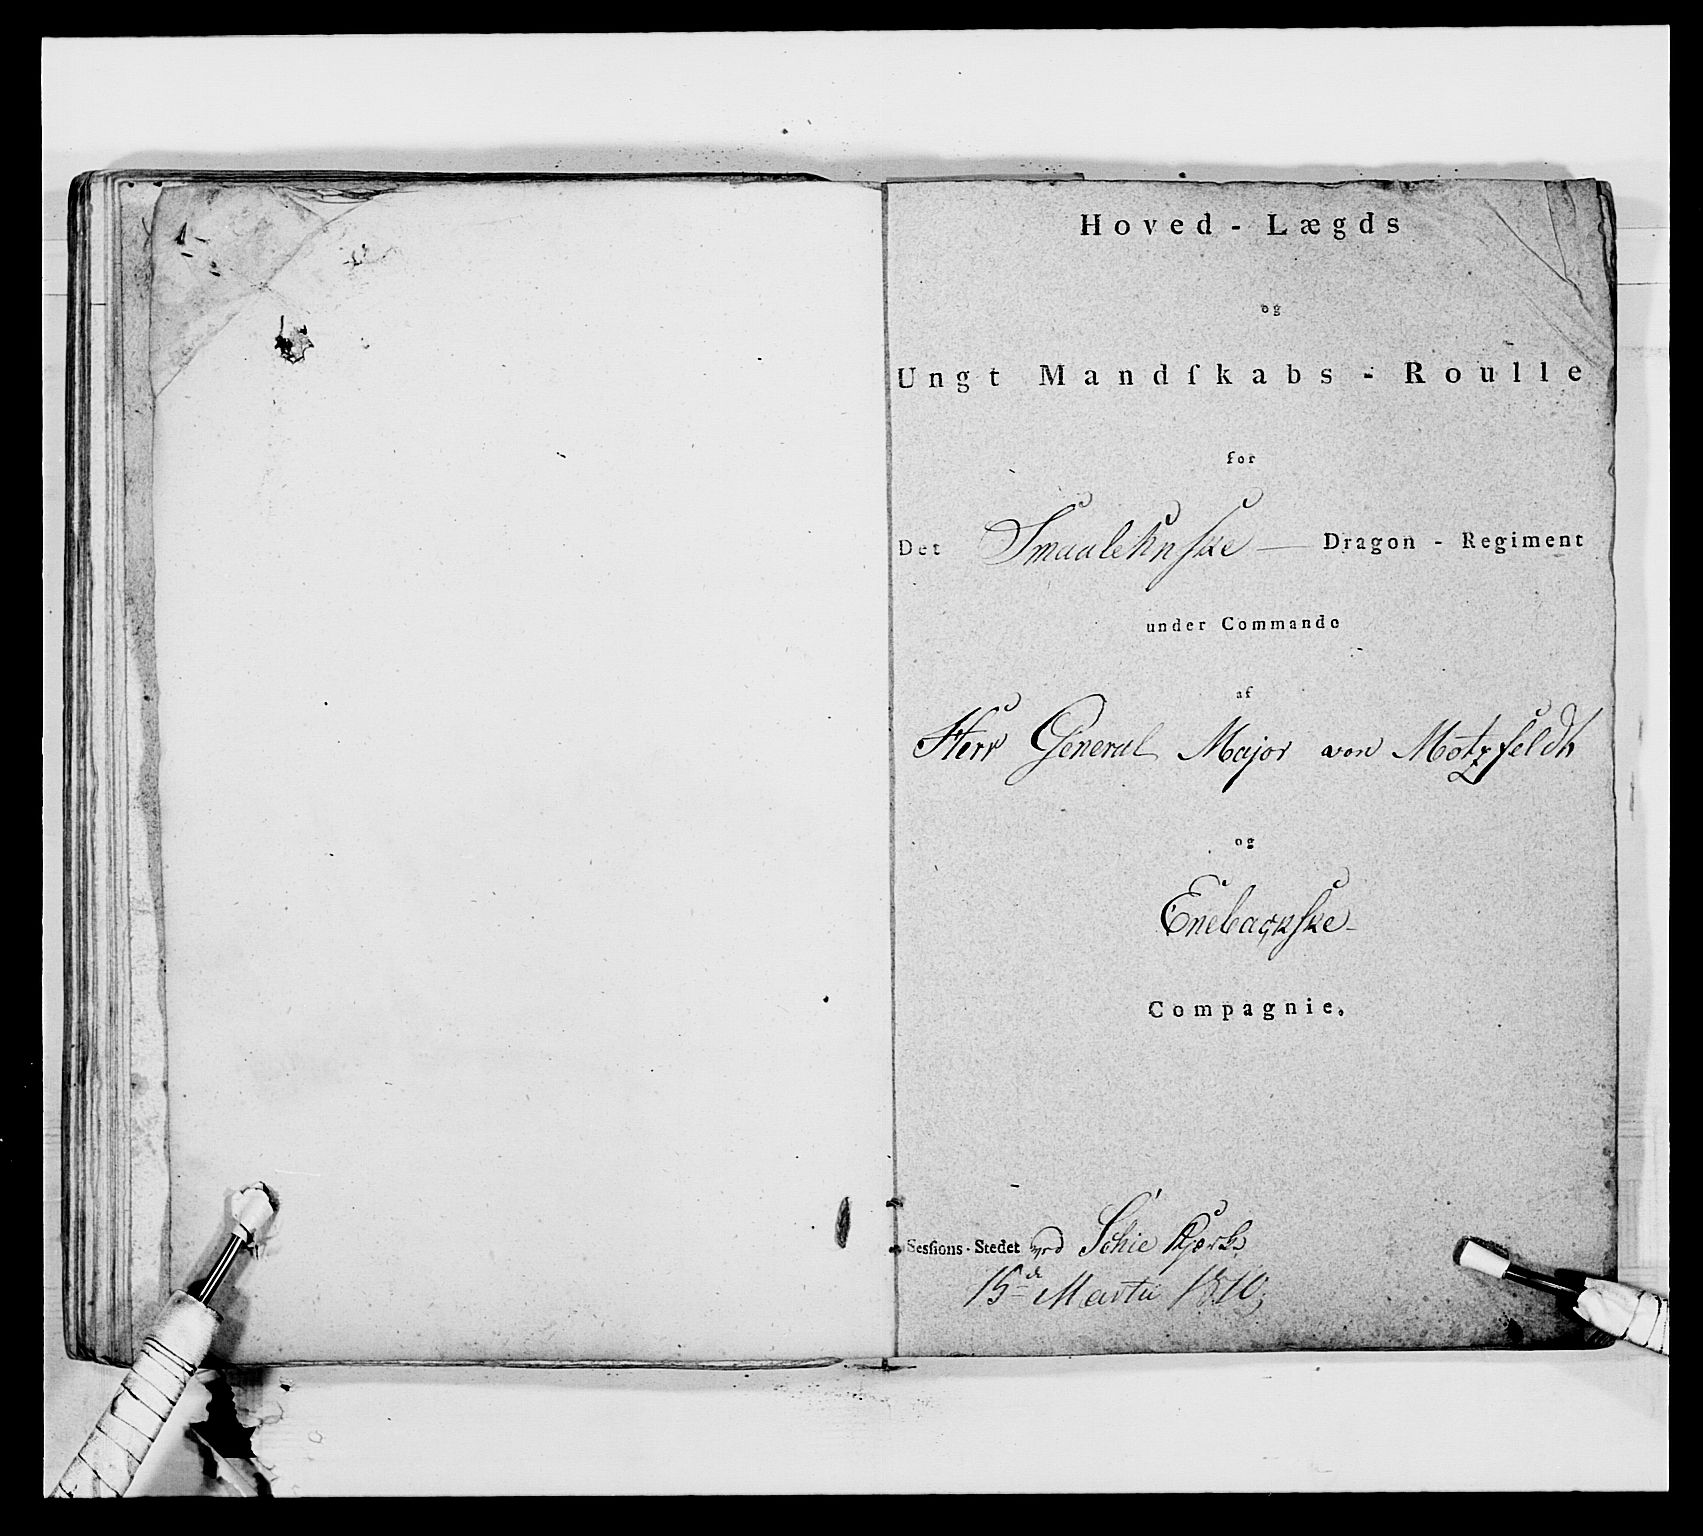 Hoved - Lægds
og
Ungt Mandſkabs - Roulle
for
Det Smaalehnſke — Dragon - Regiment
under Commando
af
Herr General Major von Motzfeldt
og
Enebackſke
Compagnie.
Sesſions-Stedet ved Schie Kjerke
15de Martii 1810;